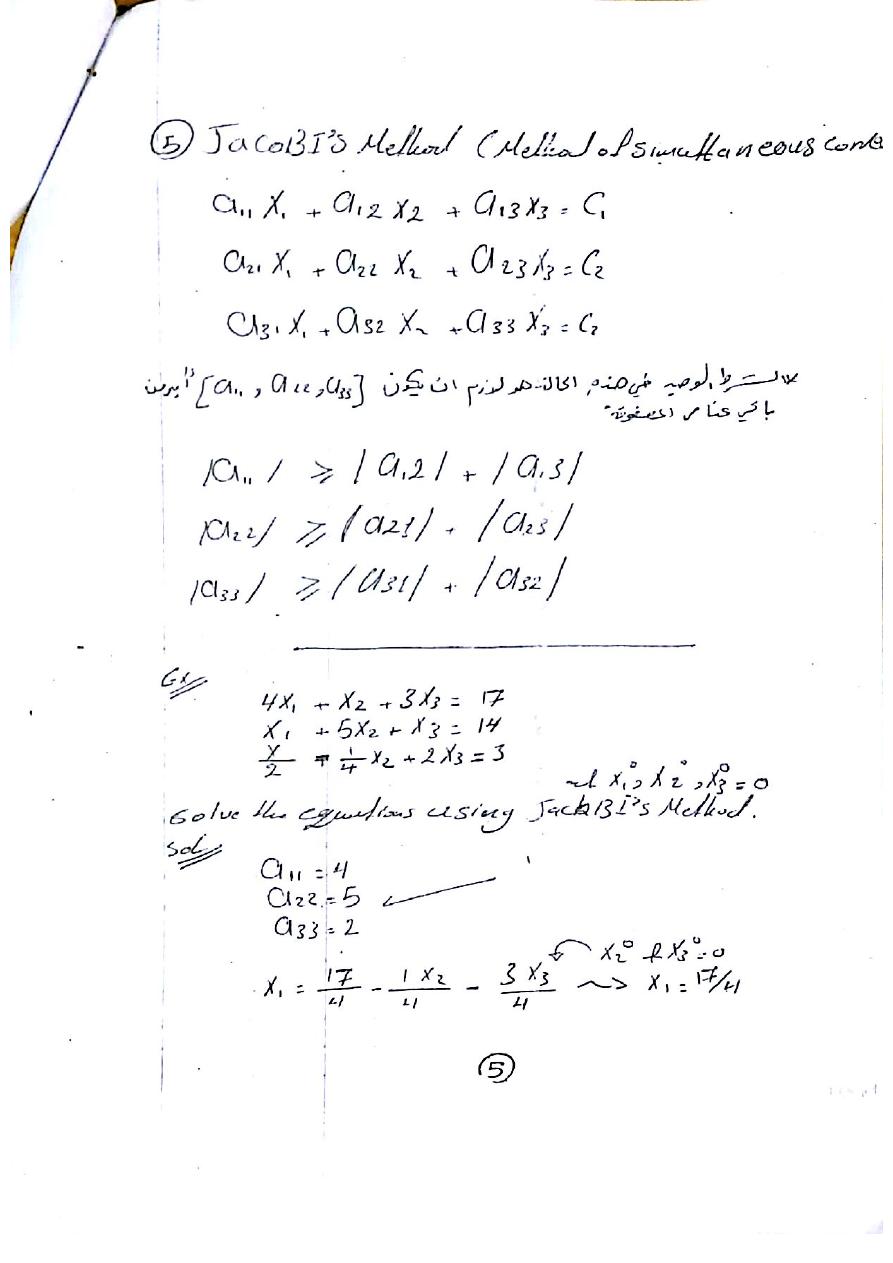 ⑤ JacoBI's Method (Method of simultaneous
a₁₁ X₁ + a₁₂ X₂ + a₁₃ X₃ = C₁
a₂₁ X₁ + a₂₂ X₂ + a₂₃ X₃ = C₂
a₃₁ X₁ + a₃₂ X₂ + a₃₃ X₃ = C₃
الشرط الوحيد في هذه الحالة هو لازم ان يكون [a₁₁, a₂₂, a₃₃] أكبر من
باقي عناصر المصفوفة
|a₁₁| ≥ |a₁₂| + |a₁₃|
|a₂₂| ≥ |a₂₁| + |a₂₃|
|a₃₃| ≥ |a₃₁| + |a₃₂|
Ex
4X₁ + X₂ + 3X₃ = 17
X₁ + 5X₂ + X₃ = 14
X/2 + 1/4 X₂ + 2X₃ = 3
X₁⁰, X₂⁰, X₃⁰ = 0
Solve the equations using JacoBI's Method.
Sol
a₁₁ = 4
a₂₂ = 5
a₃₃ = 2
X₂⁰ & X₃⁰ = 0
X₁ = 17/4 - 1 X₂/4 - 3 X₃/4 ⇝ X₁ = 17/4
⑤